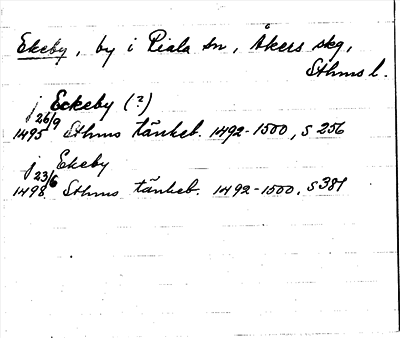 Ekeby, by i Riala sn, Åkers skg,
Sthms l.
j Eckeby (?)
26/9
1495 Sthms tänkeb. 1492-1500, s 256
j Ekeby
23/6
1498 Sthms tänkeb. 1492-1500, s 381